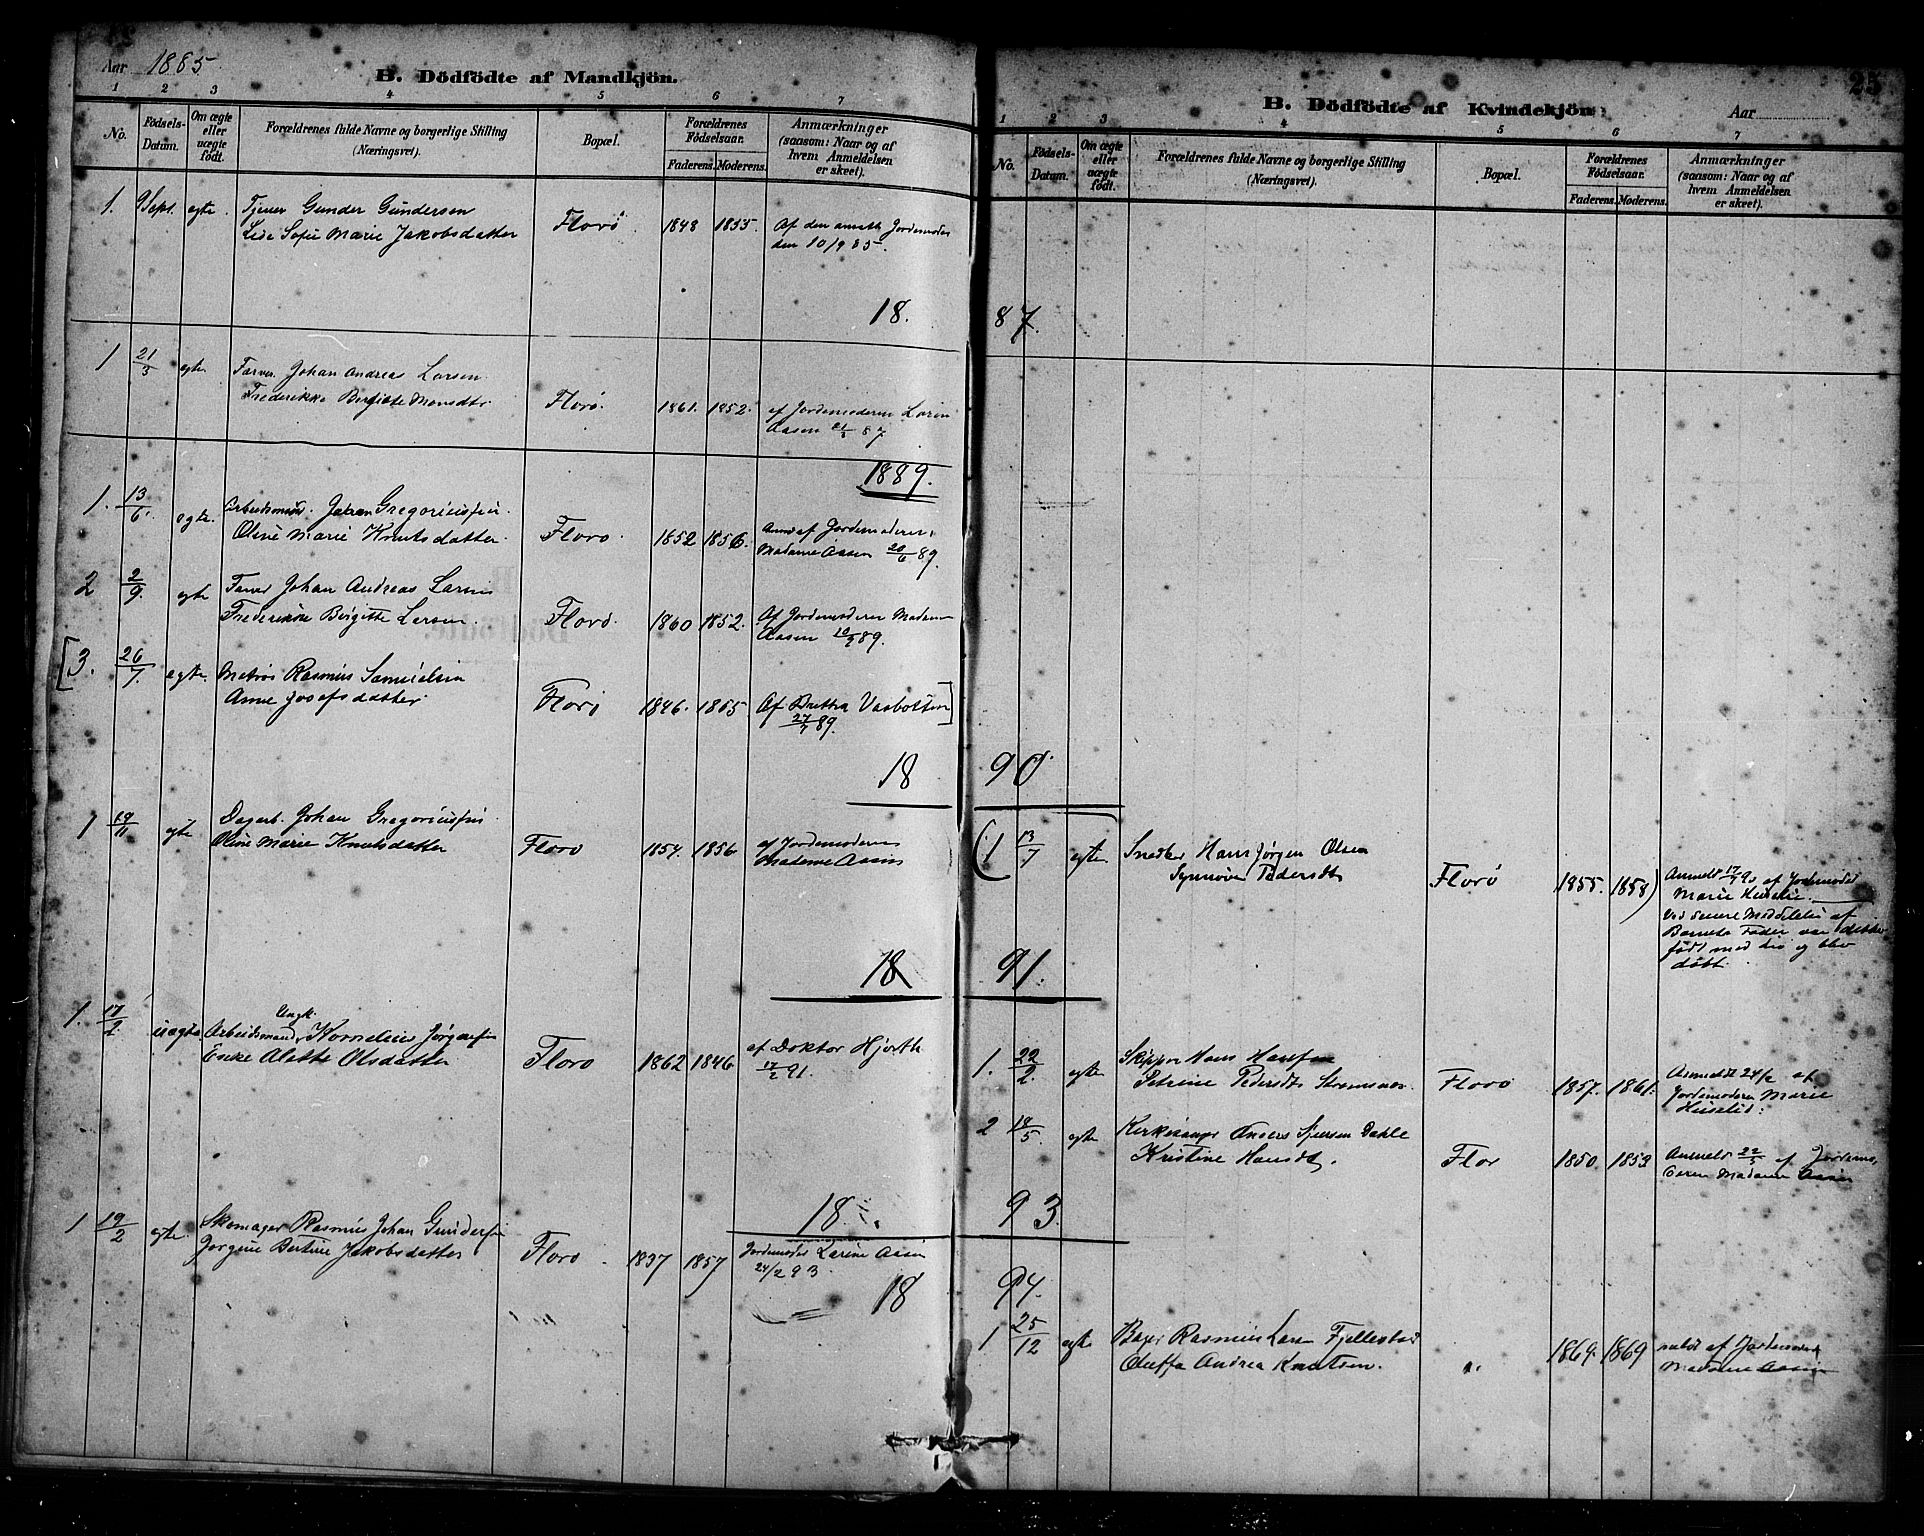 Aar 1885.
B. Dödfödte af Mandkjön.
1 2 3 4 5 6 7
No.
Födsels-Datum.
Om ægte eller uægte födt.
Forældrenes fulde Navne og borgerlige Stilling (Næringsvei).
Bopæl.
Forældrenes Födselsaar.
Faderens. Moderens.
Anmærkninger (saasom: Naar og af hvem Anmeldelsen er skeet).
1. 9 Sept. egte. Tjener Gunder Gundersen
Sofie Marie Jakobsdatter Florö. 1848 1855. Af den ansatte Jordemoder
den 10/9 85.
18.
1 21/3 egte Farver Johan Andreas Larsen
Frederikke Birgitte Monsdtr Florö. 1861. 1852. af Jordemoderen Larin
Aasen 21/3 87
1889.
1. 13/6. egte. Arbeidsmand Johan Gregoriussen
Oline Marie Knutsdatter. Floro. 1852 1856. Anm af Jordemoderen
Madame Aasen 20/6 89.
2 2/9. egte Farver Johan Andreas Larsen
Frederikke Birgitte Larsen. Florö. 1860 1852. Af Jordemoderen Madame
Aasen 10/9 89.
[3. 26/7. egte. Matros Rasmus Samuelsen
Anne Josefsdatter Florö 1846. 1865 Af Brethe Vasbotten]
27/7 89.
18
1 19/11 egte Dagarb. Johan Gregoriussen
Oline Marie Knutsdatter Floro 1854. 1856 af Jordemoderen
Madame Aasen
18
1. 17/2. uægte Arbeidsmand Ungk. Kornelius Jørgensen
Alette Olsdatter Floro 1862 1846 af Doktor Hjorth
17/2 91.
18
1 19/2 egte Skomager Rasmus Johan Gundersen
Jorgine Bertine Jakobsdatter Floro. 1837 1857 Jordemoder Larine Aasen
24/2 93.
18
25
B. Dödfödte af Kvindekjön.
Aar
1 2 3 4 5 6 7
No.
Födsels-Datum.
Om ægte eller uægte födt.
Forældrenes fulde Navne og borgerlige Stilling (Næringsvei).
Bopæl.
Forældrenes Födselsaar.
Faderens. Moderens.
Anmærkninger (saasom: Naar og af hvem Anmeldelsen er skeet).
87.
90.
(1 13/7 egte Snedker Hans Jørgen Olsen
Synnøve Pedersdtr Florö 1855. 1858) Anmeldt 17/7 90 af Jordemoder
Marie Huselie.
Ved senere Meddelelse af
Barnets Fader var dette
født med Liv og blev
døbt.
91.
1. 22/2. egte Skipper Hans Hansen
Petrine Pedersdtr Florö 1857. 1861. Anmeldt 24/2 af
Jordemoderen Marie
Huselid.
2 18/5. egte Kirkesanger Anders Dahle
Kristine Hansdtr. Flor 1850. 1853 Anmeldt 22/5 af Jordemo-
deren Madame Aasen
93.
94.
1 25/12 egte Rasmus Larsen Fjellestad
Oluffa Andrea Knutsen. " 1869. 1869 af Jordemoder
Madame Aasen